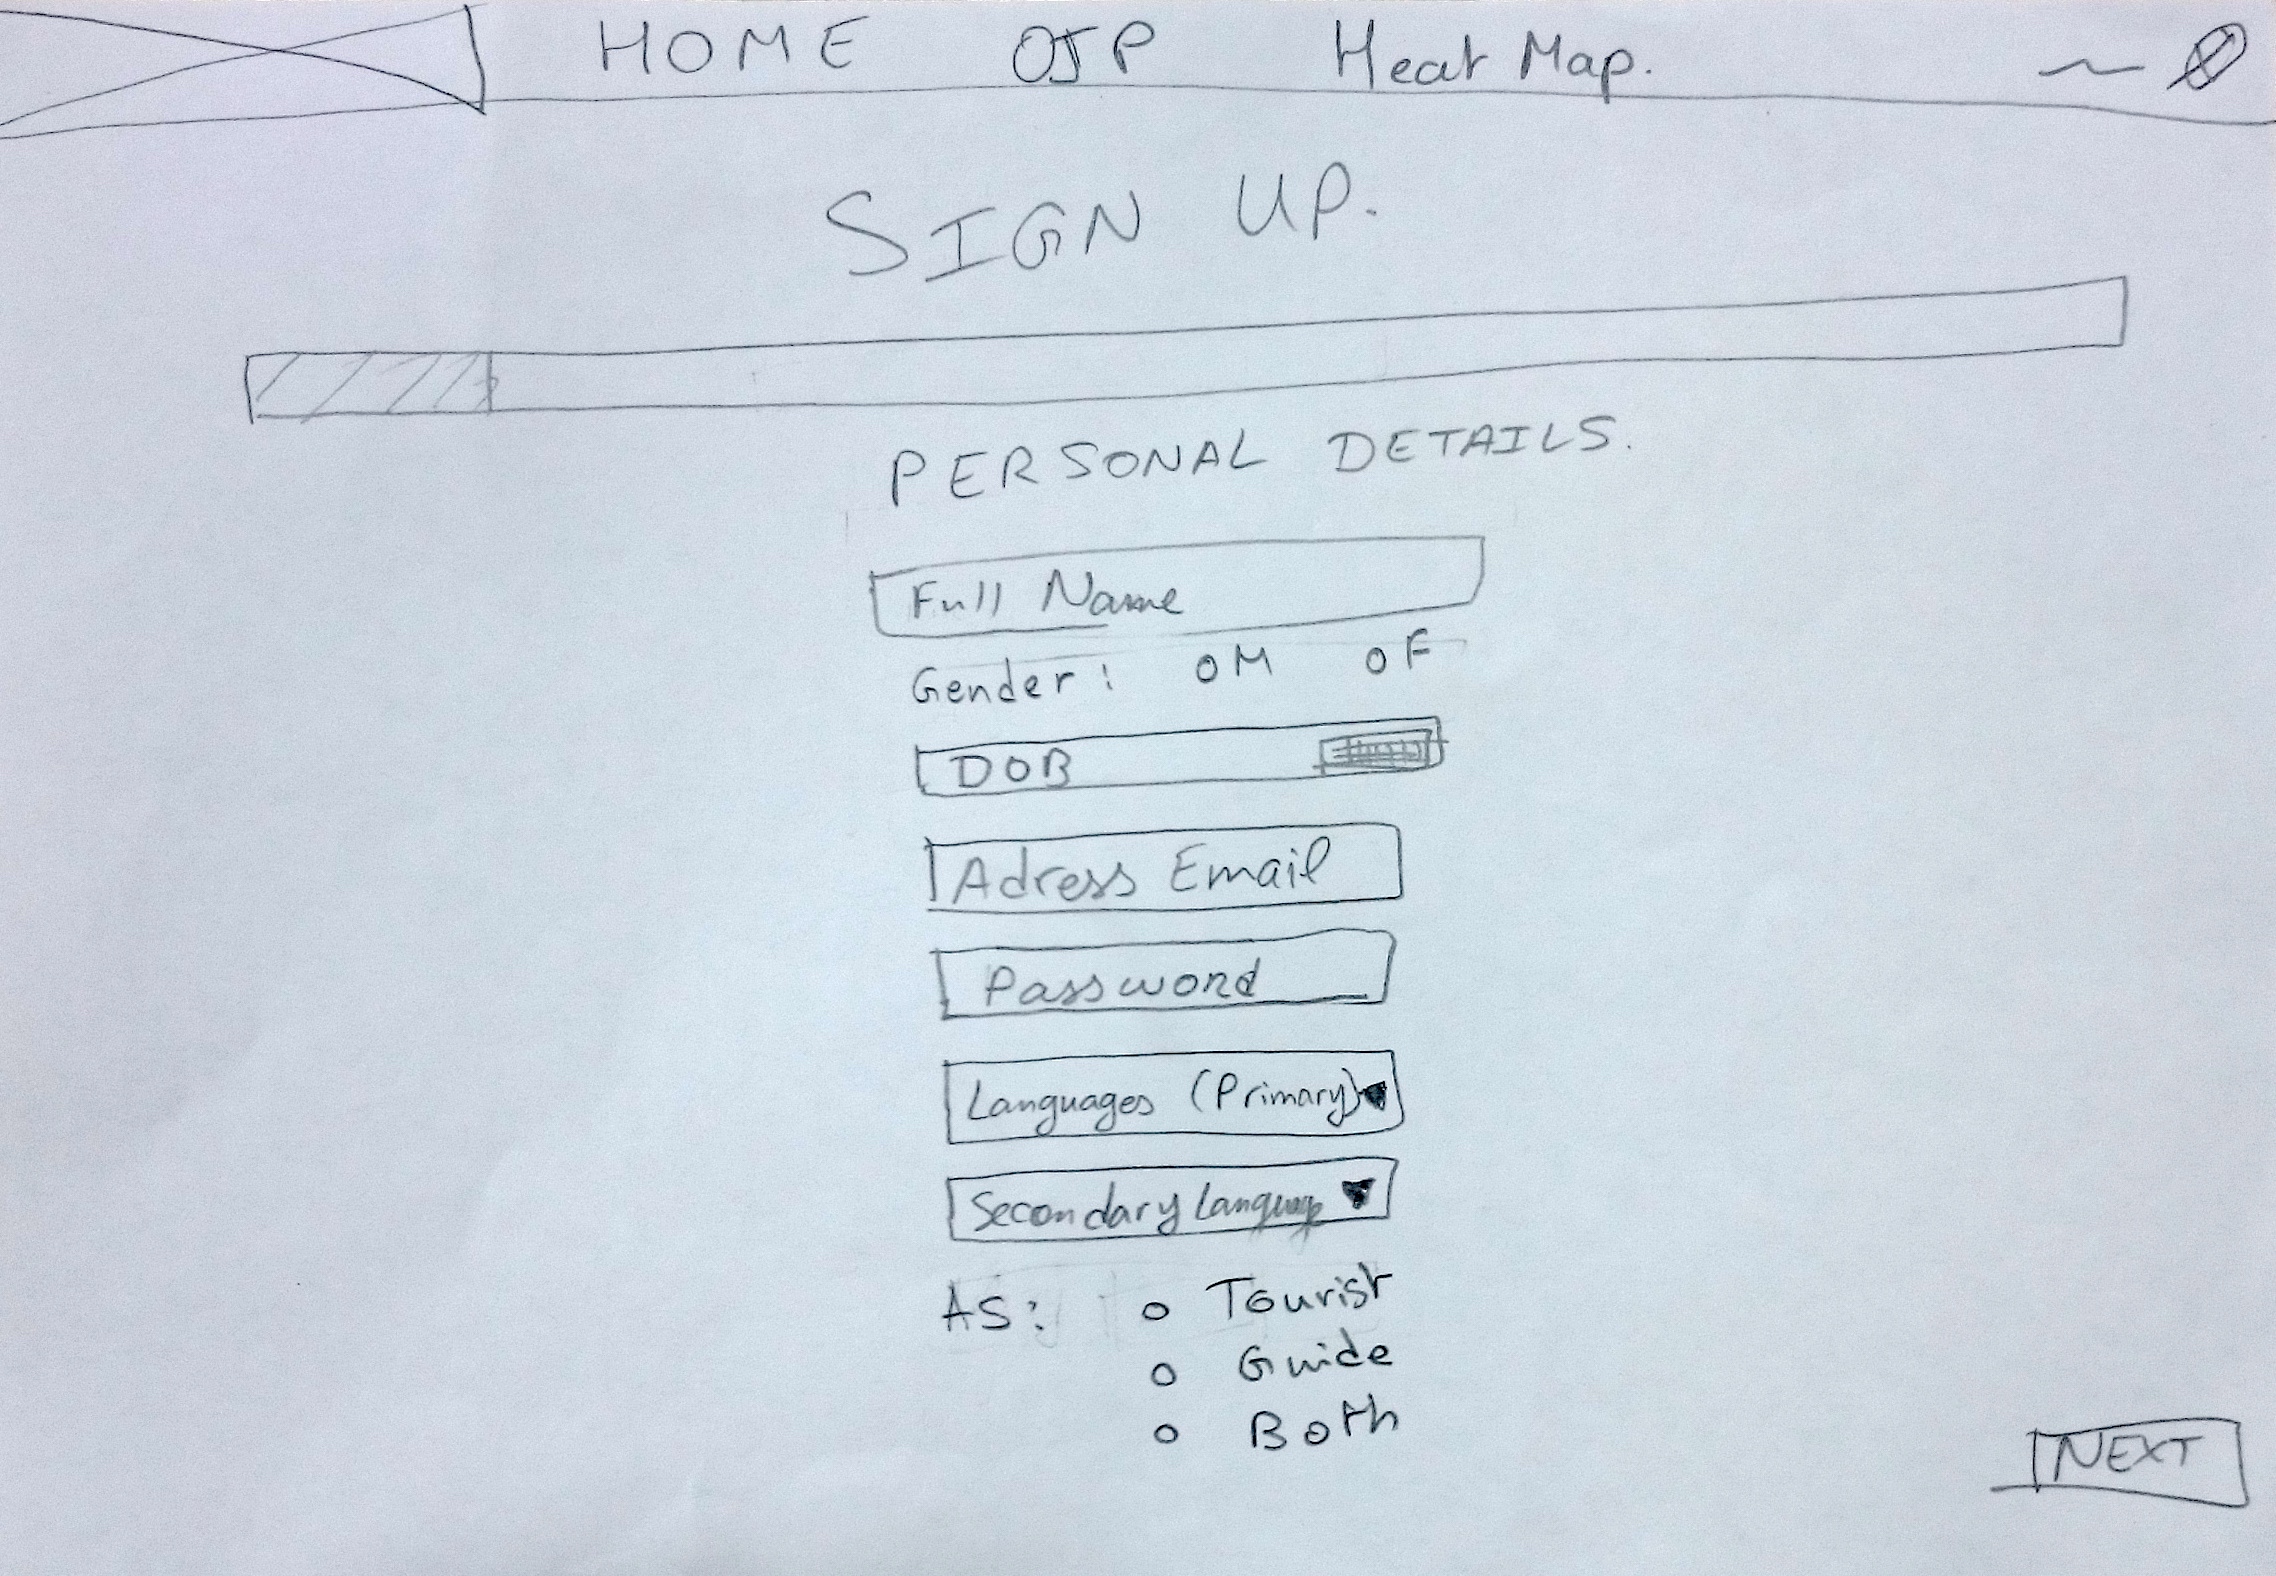 HOME OJP Heat Map.
SIGN UP.
PERSONAL DETAILS.
Full Name
Gender: M F
DOB
Adress Email
Password
Languages (Primary)
Secondary Language
AS: Tourist
Guide
Both
NEXT